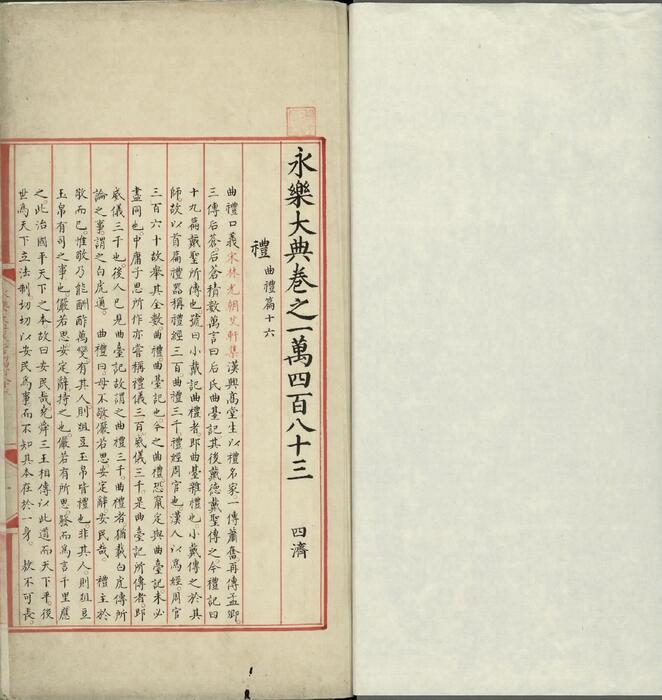 永樂大典卷之一萬四百八十三 四濟
禮 曲禮篇十六
曲禮口義宋林光朝艾軒集漢興高堂生以禮名家一傳蕭奮再傳孟卿
三傳后蒼后蒼積數萬言曰后氏曲臺記其後戴德戴聖傳之今禮記四
十九篇戴聖所傳也號曰小戴記曲禮者即曲臺雜禮也小戴傳之於其
師故以首篇禮器稱禮經三百曲禮三千禮經周官也漢人以為經周官
三百六十故舉其全數曲禮曲臺記也今之曲禮恐竄定與曲臺記未必
盡同也中庸子思所作亦嘗稱禮儀三百威儀三千是曲臺記所傳者即
威儀三千也後人已見曲臺記故謂之曲禮三千曲禮者猶載白虎傳所
論之事謂之白虎通 曲禮曰毋不敬儼若思安定辭安民哉 禮主於
敬而已惟敬乃能酬酢萬變有其人則俎豆玉帛皆禮也非其人則俎豆
玉帛有司之事也儼若思安定辭持之也儼若有所思發而為言千里應
之此治國平天下之本故曰安民哉堯舜三王相傳以此道而天下平後
世為天下立法制切切以安民為事而不知其本在於一身 敖不可長